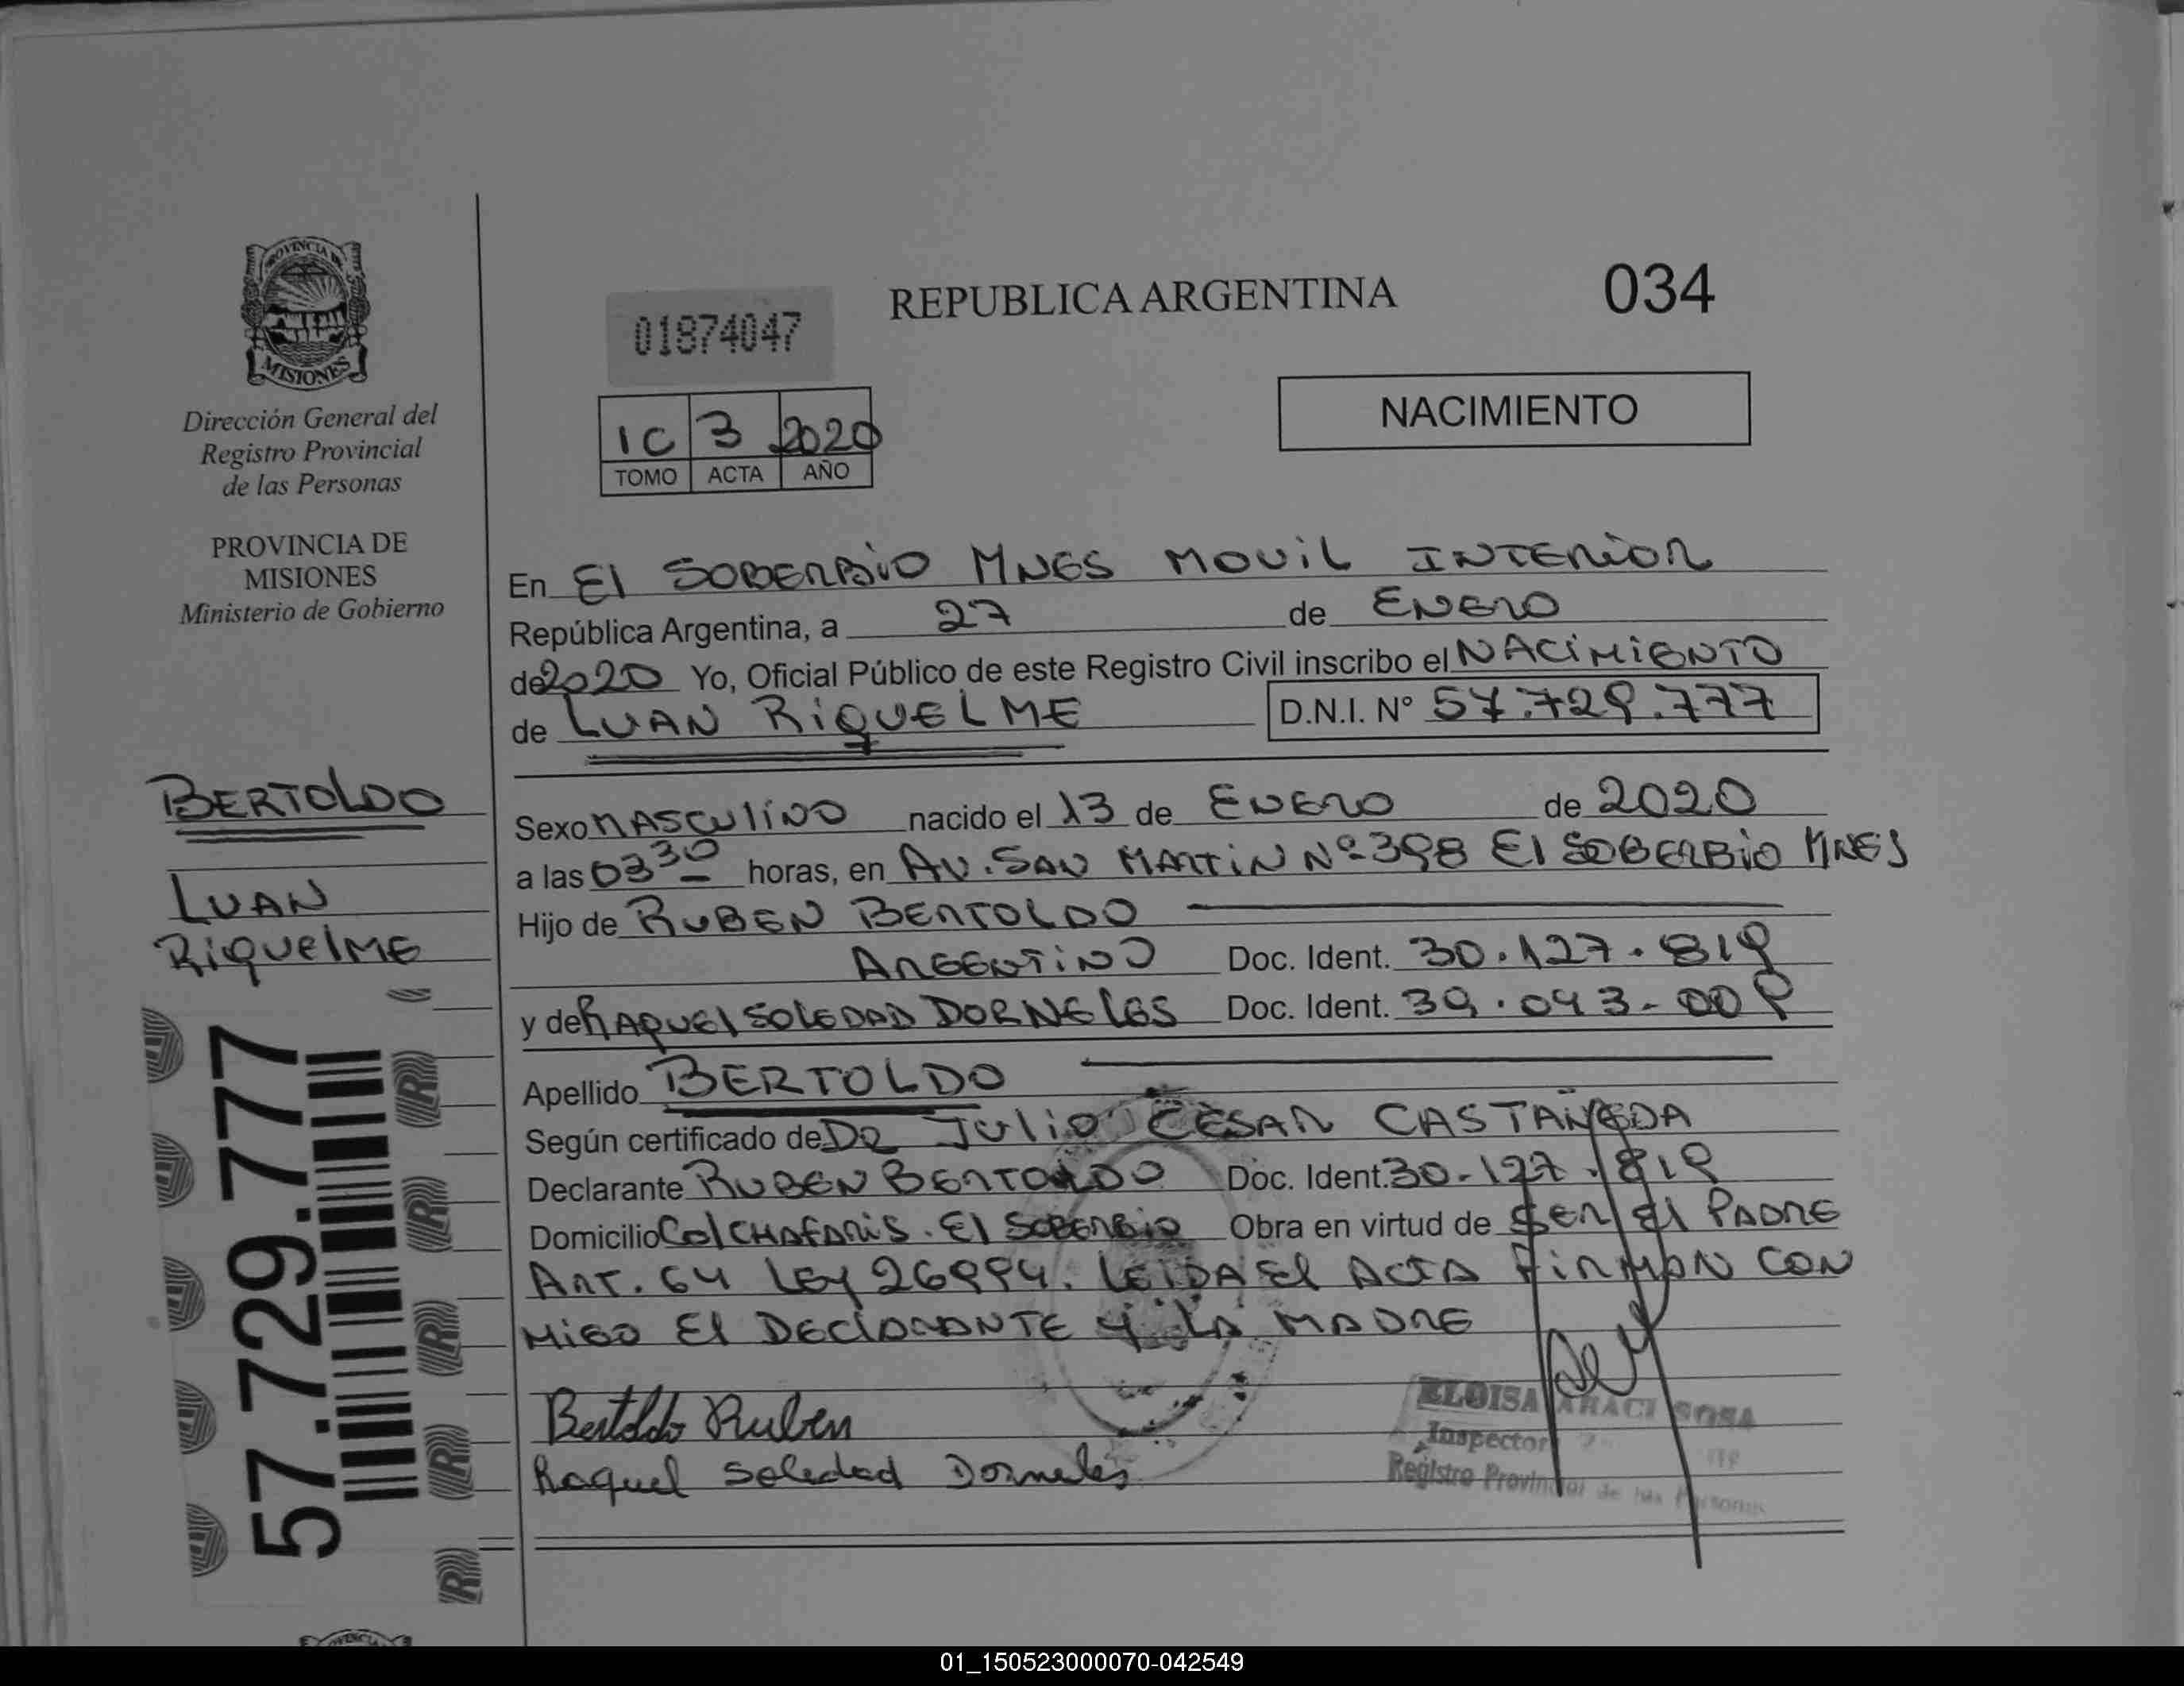 PROVINCIA DE
MISIONES
Dirección General del
Registro Provincial
de las Personas
PROVINCIA DE
MISIONES
Ministerio de Gobierno
BERTOLDO
LUAN
RiquelME
57.729.777
01874047
REPUBLICA ARGENTINA
034
1C 3 2020
TOMO ACTA AÑO
NACIMIENTO
En El SOBERBiO MNES MOViL INTERiOR
República Argentina, a 27 de ENERO
de 2020 Yo, Oficial Público de este Registro Civil inscribo el NACiMiENTO
de LUAN RiQUELME D.N.I. Nº 57.729.777
Sexo MASCUliNO nacido el 13 de ENERO de 2020
a las 03 30 horas, en AV. SAN MARTiN Nº 398 El SOBERBiO MNES
Hijo de RUBEN BERTOLDO
ARGENTiNO Doc. Ident. 30.127.819
y de RAQUEl SOLEDAD DORNElES Doc. Ident. 39.043.009
Apellido BERTOLDO
Según certificado de DR JUliO CESAR CASTAÑEDA
Declarante RUBEN BERTOLDO Doc. Ident. 30-127.819
Domicilio Col CHAFARiS. El SOBERBiO Obra en virtud de SER El PADRE
ART. 64 LEY 26994. LEIDA El ACTA FiRMAN CON
MiGO El DEClARANTE Y LA MADRE
Bertoldo Ruben
Raquel Soledad Dorneles
ELOISA ARACI SOSA
Inspector
Registro Provincial de las Personas
01_150523000070-042549